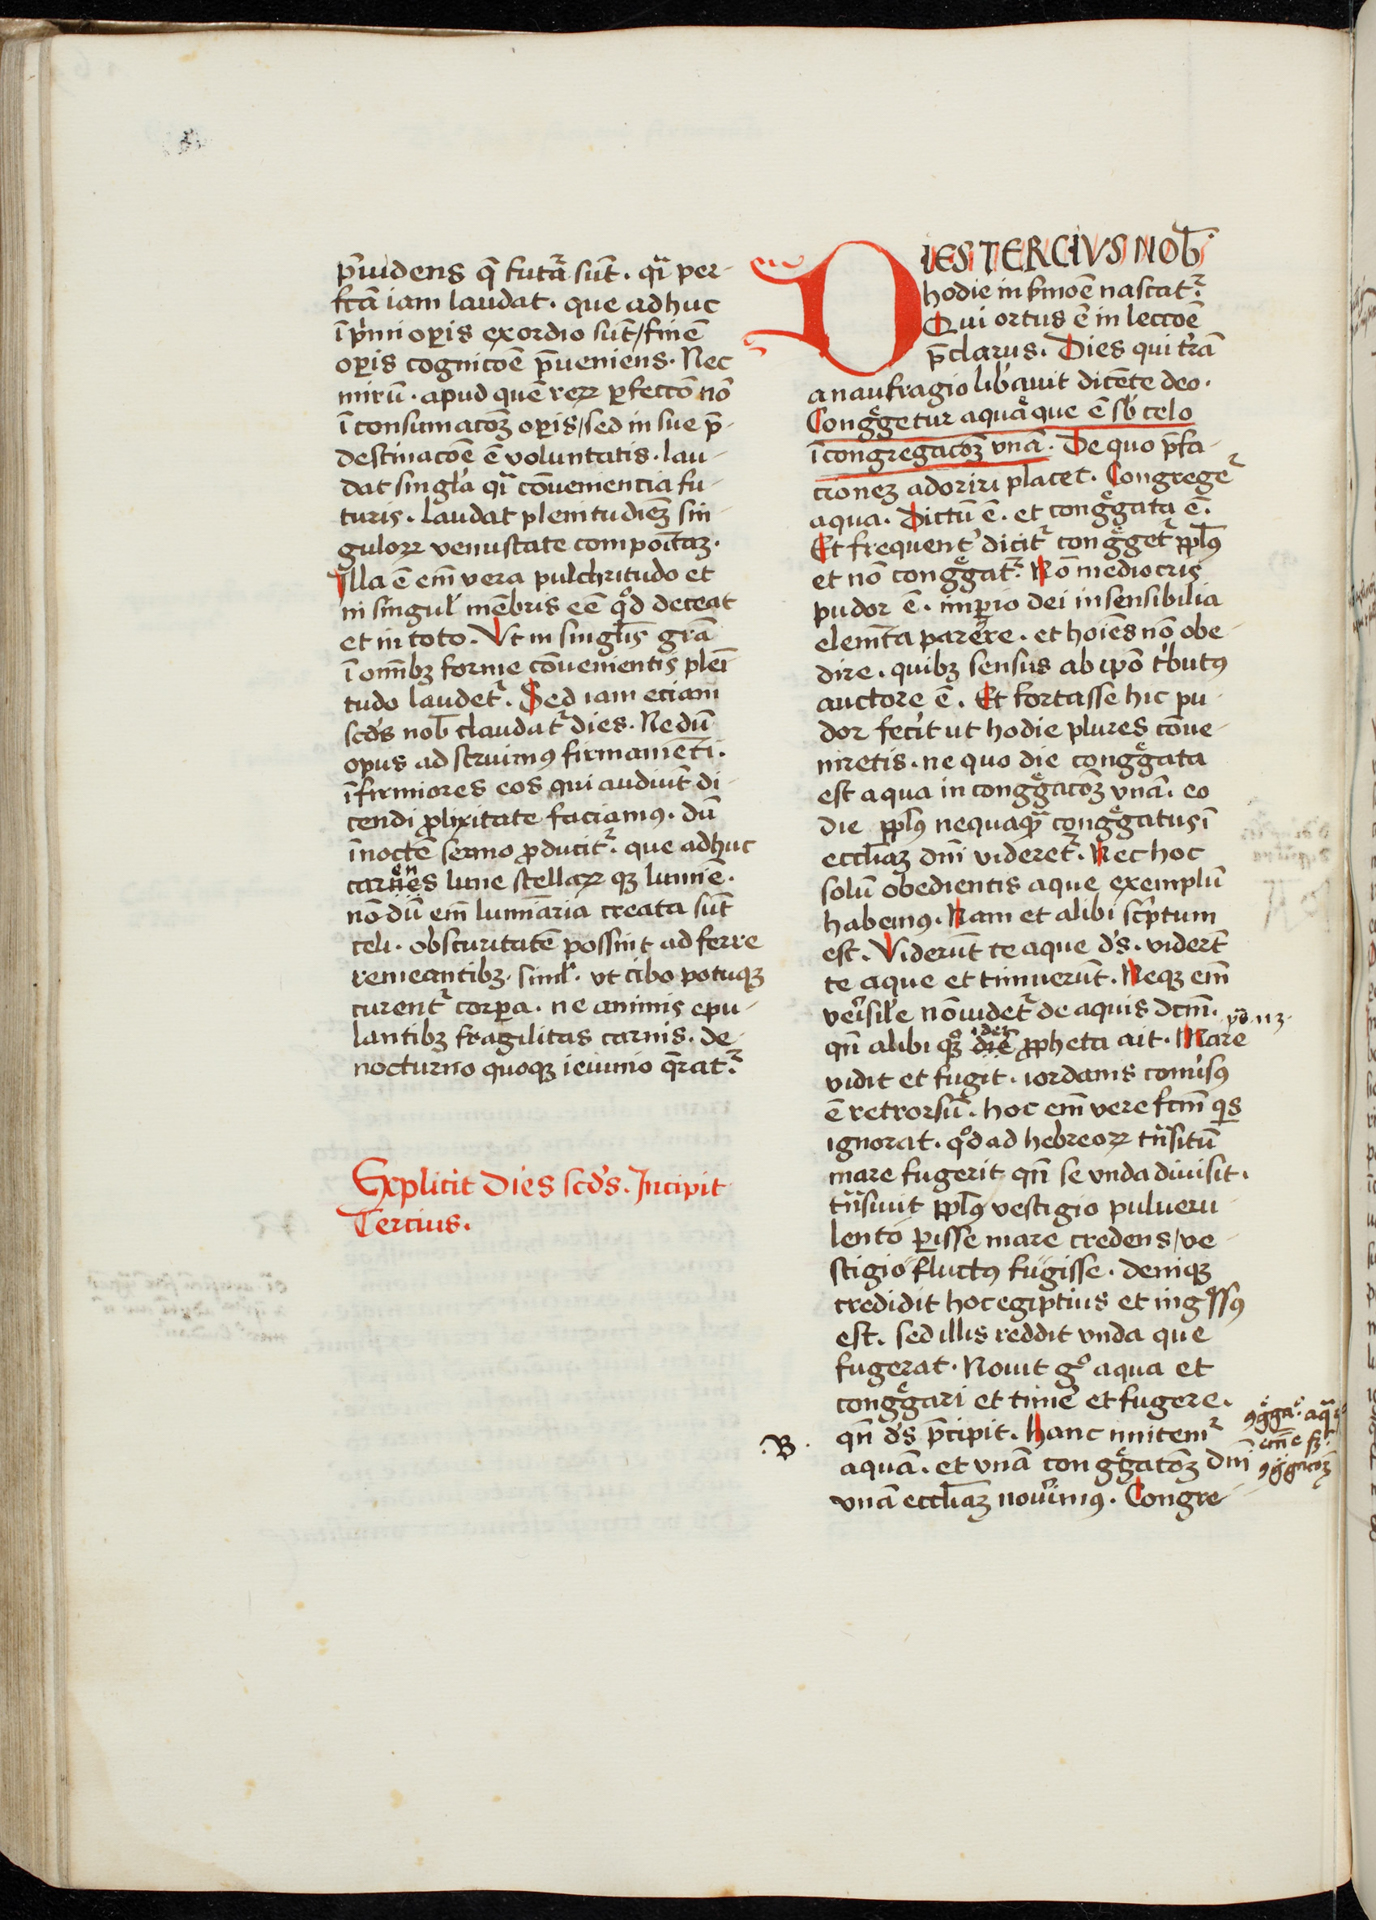 p̄uidens q̄ futᷓa sūt. qᷓi per-
fcām iam laudat. que adhuc
ī p̓mi oꝑis exordio sūt/finē
oꝑis cognicoē p̄ueniens. Nec
mirū. apud quē reꝝ ꝑfeccō nō
ī consumacōꝫ oꝑis/sed in sue p̄-
destinacoē ē voluntatis. lau-
dat singl̓a qᷓi cōueniencia fu-
turis. laudat plenitudīeꝫ sin
guloꝝ venustate compoītaꝫ.
Illa ē em̄ vera pulchritudo et
in singul̓ mēbris eē qd̓ deceat
et in toto. Vt in singl̓is grā
ī om̄ībꝫ forme cōuenientis plēi
tudo laudetᷣ. Sed iam eciam
scd̓s nob̄ claudatᷣ dies. Ne dū
opus ad struimꝰ firmamēti.
īfirmiores eos qui audiūt di-
cendi ꝓlixitate faciamꝰ. dū
ī noctē sermo ꝓducitᷣ. que adhuc
carnēs lune stellaꝝ qꝫ lumīē.
nō dū em̄ lumīaria creata sūt
celi. obscuritatē possint ad ferre
remeantibꝫ. siml̓. vt cibo potuqꝫ
curentᷣ corꝑa. ne animis epu-
lantibꝫ fragilitas carnis. de
nocturno quoqꝫ ieiunio q̄ratᷣ.
Explicit Dies scd̓s. Incipit
Tercius.
DIES TERCIVS NOB̄
hodie in ẜmoē nascatᷣ.
Qui ortus ē in leccoē
p̄clarus. Dies qui tr̄ā
a naufragio lib̓auit dicēte deo.
Congᷓgetur aqua que ē sb̓ celo
ī congregacōꝫ vnā. De quo p̄fa-
cioneꝫ adoriri placet. Congregeᷣ
aqua. Dictū ē. et congᷓgata ē.
Et frequent̓ dicitᷣ congᷓgetᷣ ppl̓s
et nō congᷓgatᷣ. Nō mediocris
pudor ē. imꝑio dei insensibilia
elemēta parere. et hoīes nō obe-
dire. quibꝫ sensus ab ipō t̓butꝰ
auctore ē. Et fortasse hic pu
dor fecit ut hodie plures cōue-
niretis. ne quo die congᷓgata
est aqua in congᷓgacōꝫ vnā. eo
die ppl̓s nequaqᷓ congᷓgatus ī
eccl̄iaꝫ dn̄i videretᷣ. Nec hoc
solū obedientis aque exemplū
habemꝰ. Nam et alibi sc̓ptum
est. Viderūt te aque ds̓. viderūt
te aque et timuerūt. Neqꝫ em̄
veri̓sil̓e nō uidetᷣ de aquis dcm̄.
qn̄ alibi qꝫ ꝓpheta ait. Mare
vidit et fugit. iordanis comi̓sꝰ
ē retrorsū. hoc em̄ vere fcm̄ q̓s
ignorat. qd̓ ad hebreoꝝ trn̄situ̅
mare fugerit qn̄ se vnda diuisit.
trn̄siuit ppl̓s vestigio pulueru
lento ꝑisse mare credens/ve
stigio fluctꝰ fugisse. deniqꝫ
credidit hoc egiptius et ingᷓssꝰ
est. sed illis reddit vnda que
fugerat. Nouit gͦ aqua et
congᷓgari et time̓ et fugere.
qn̄ ds̓ p̄cipit. Hanc imitemᷣ
aquā. et vnā congᷓgacōꝫ dn̄i
vnā eccl̄iaꝫ nou̓imꝰ. Congre
.B.